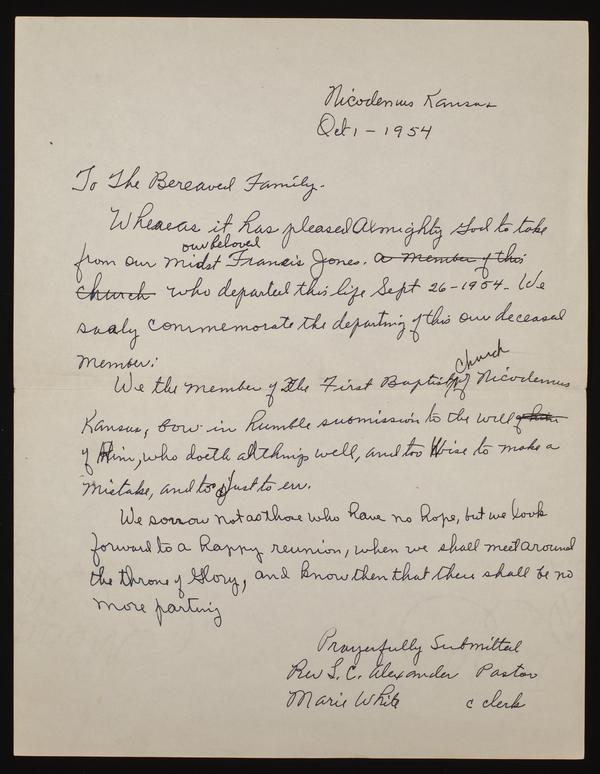 Nicodemus Kansas
Oct 1 - 1954
To The Bereaved Family.
Whereas it has pleased Almighty God to take
our beloved
from our midst Francis Jones. a member of this
church who departed this life Sept 26-1954. We
sadly commemorate the departing of this our deceased
member:
church
We the member of The First Baptist of Nicodemus
Kansas, bow in humble submission to the will
of Him, who doeth all things well, and too Wise to make a
mistake, and too Just to err.
We sorrow not as those who have no hope, but we look
forward to a happy reunion, when we shall meet around
the throne of Glory, and know then that there shall be no
more parting
Prayerfully Submitted
Rev S. C. Alexander Pastor
Marie White c clerk